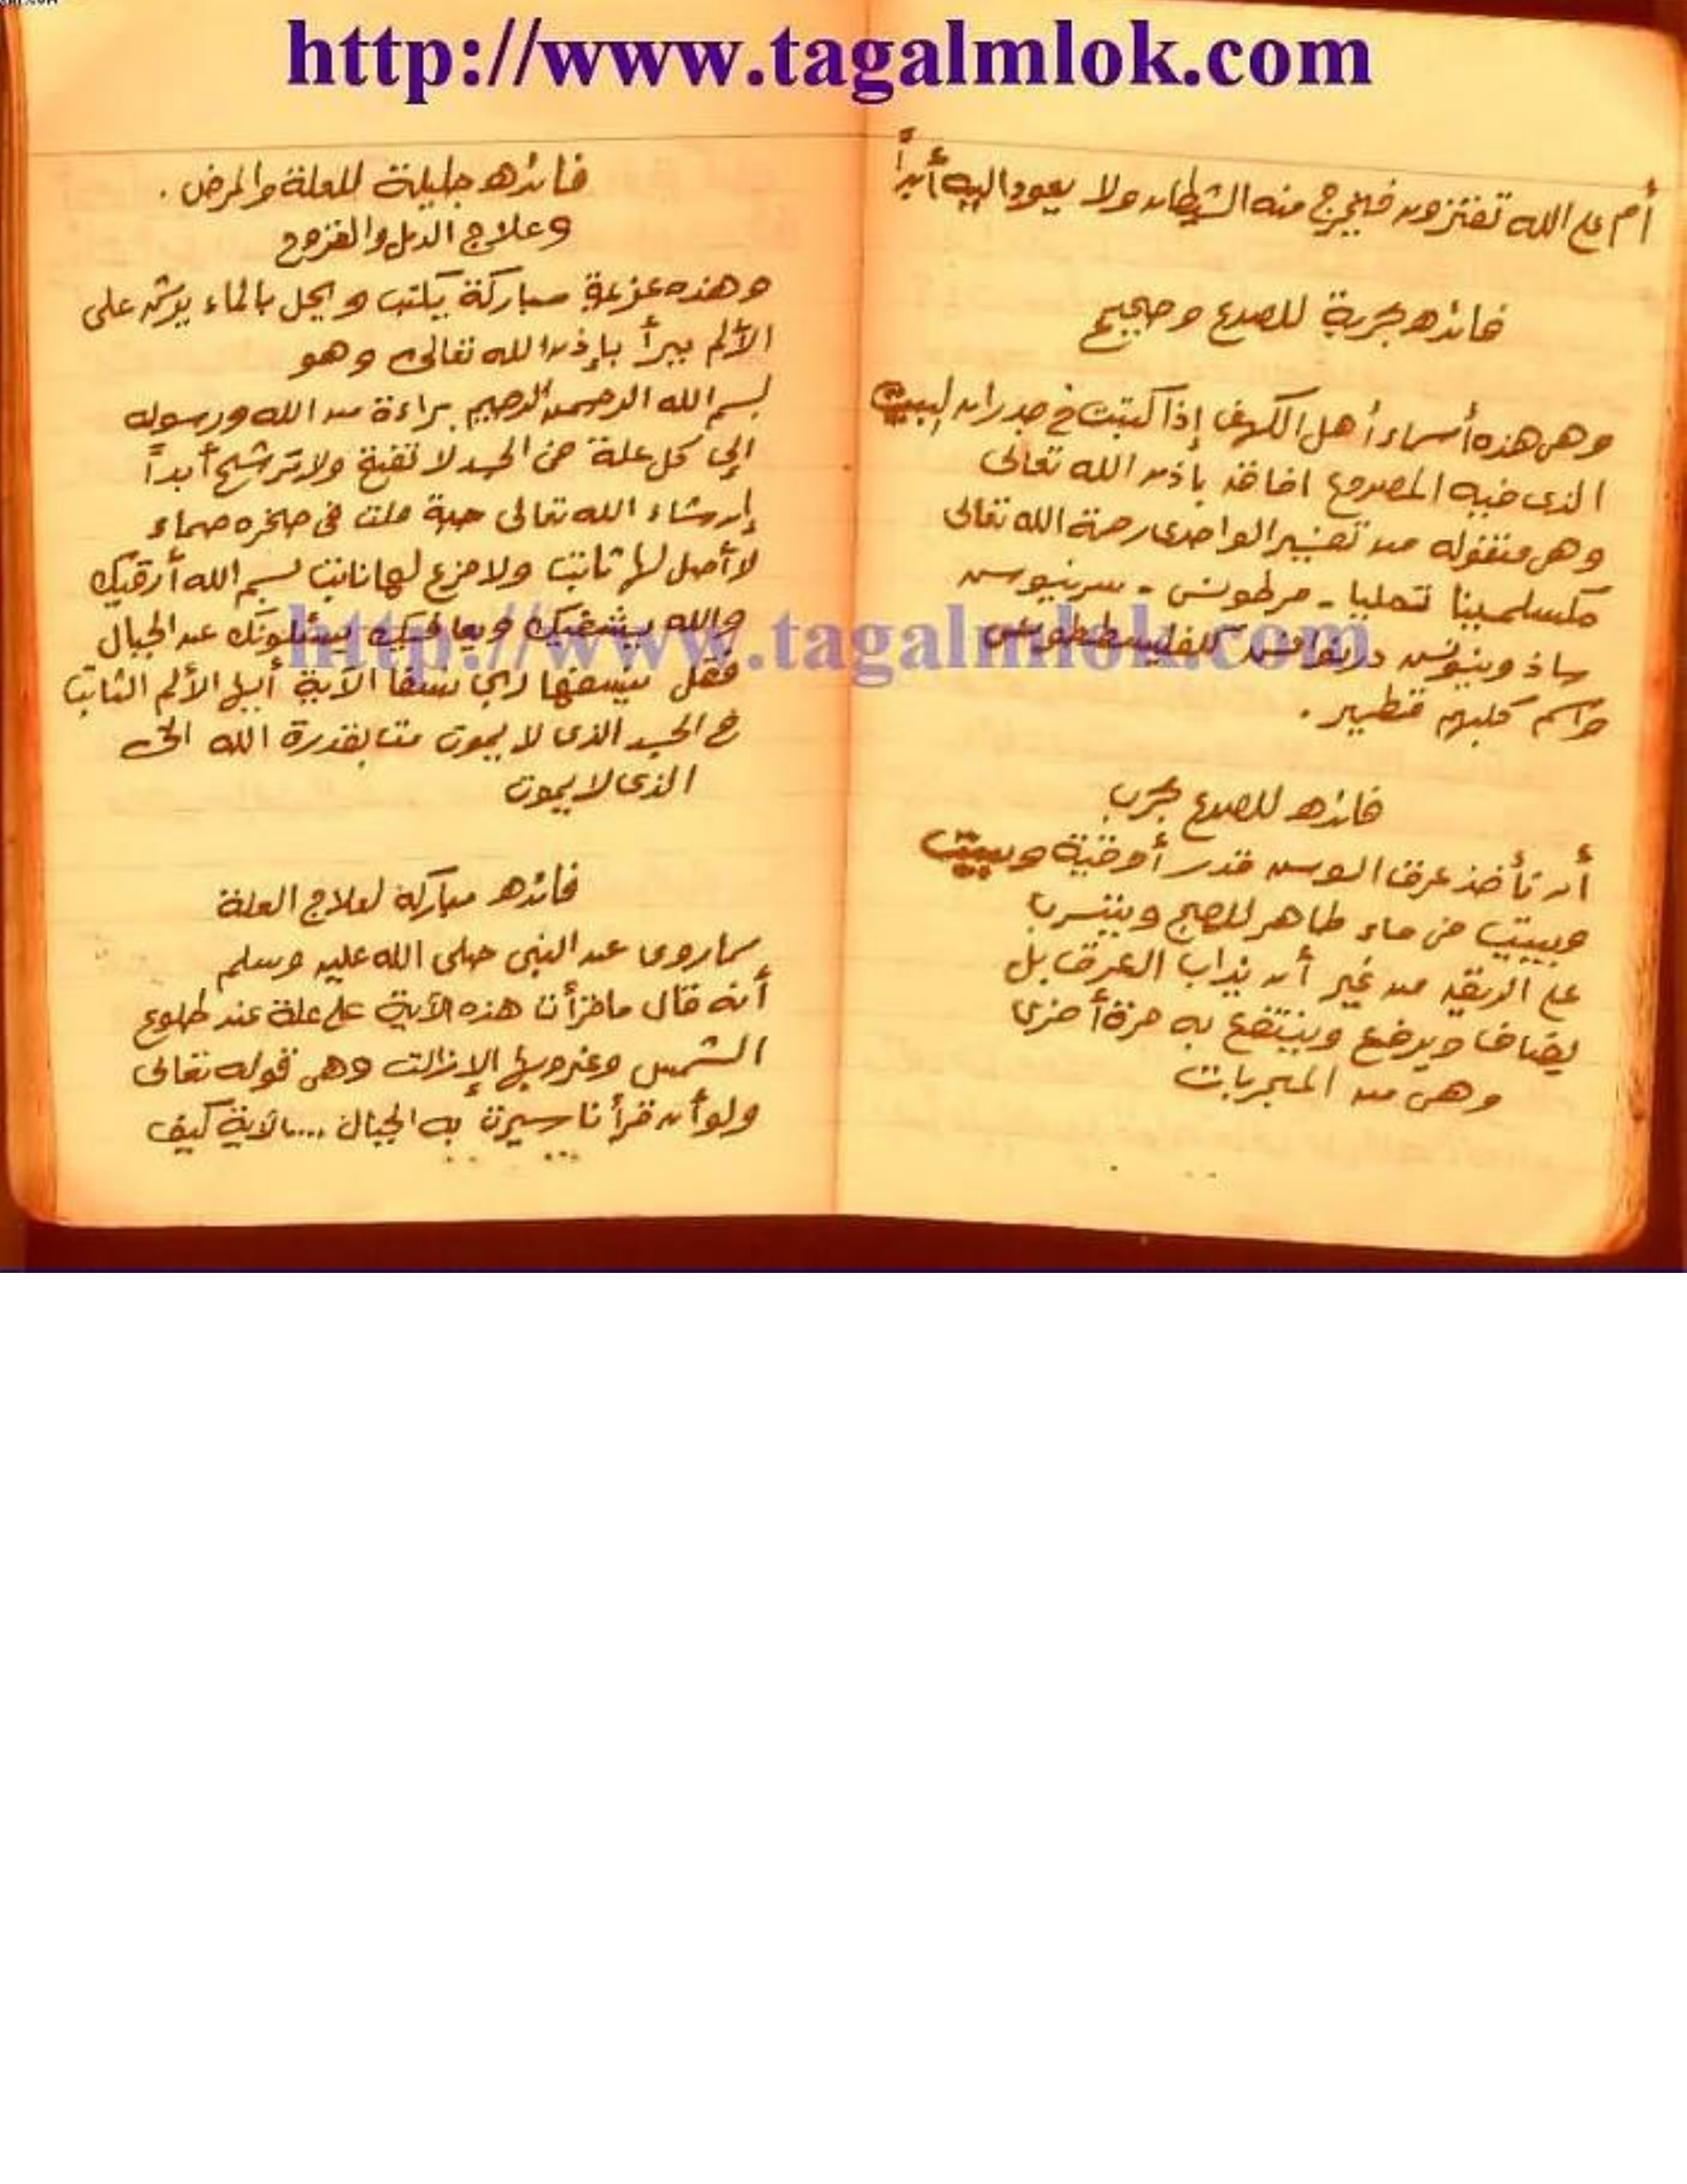 http://www.tagalmlok.com
أم على الله تفترون فيخرج منه الشيطان ولا يعود اليه أبداً
فائده مجربة للصرع وصحيح
وهى هذه أسماء أهل الكهف إذا كتبت فى جدران البيت
الذى فيه المصروع افاق باذن الله تعالى
وهى منقوله من تفسير الواحدى رحمة الله تعالى
مكسلمينا تمليا - مرطونس - سرينوس
ساذ وينونس
واسم كلبهم قطمير .
فائده للصرع مجرب
أن تأخذ عرق السوس قدر أوقية وبييت
وبييت فى ماء طاهر للصبح ويشرب
على الريق من غير أن يذاب العرق بل
يضاف ويرفع وينتفع به مرة أخرى
وهى من المجربات
فائده جليلة للعلة والمرض .
وعلاج الدمل والقروح
وهذه عزيمة مباركة يكتب ويحل بالماء يرش على
الألم يبرأ بإذن الله تعالى وهو
بسم الله الرحمن الرحيم براءة من الله ورسوله
إلى كل علة فى الجسد لا تفتح ولا ترشح أبداً
إن شاء الله تعالى حبة ملت فى صخره صماء
لا أصل لها ثابت ولا فرع لها نابت بسم الله أرقيك
والله يشفيك ويعافيك يسئلونك عن الجبال
فقل ينسفها ربى نسفا الآية أيها الألم الثابت
فى الجسد الذى لا يموت مت بقدرة الله الحى
الذى لا يموت
http://www.tagalmlok.com
فائده مباركة لعلاج العلة
مما روى عن النبى صلى الله عليه وسلم
أنه قال ما قرأت هذه الآية على علة عند طلوع
الشمس وغروبها إلا زالت وهى قوله تعالى
ولو أن قرأنا سيرت به الجبال .... الآية كيف